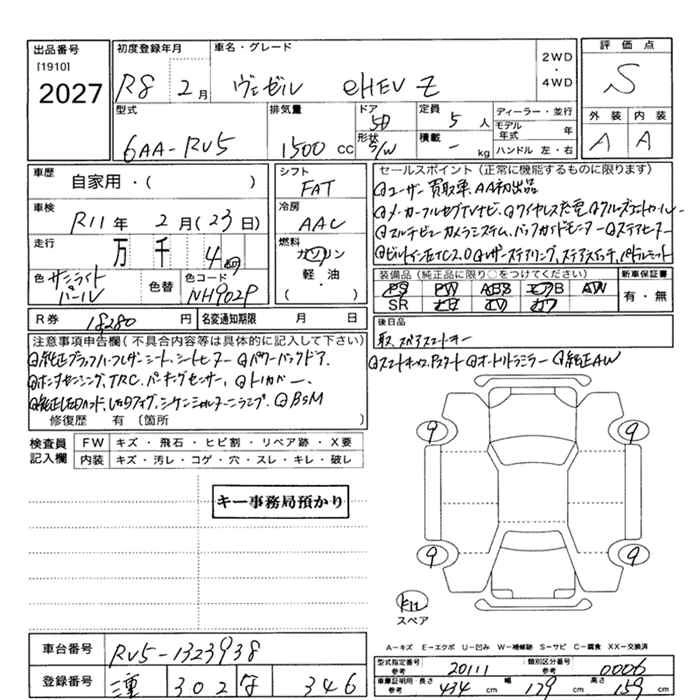 出品番号
[1910]
2027
初度登録年月
R8 2月
車名・グレード
ヴェゼル eHEV Z
2WD
・
4WD
評価点
S
型式
6AA-RV5
排気量
1500 CC
ドア
5D
形状
S/W
定員
5 人
積載
- kg
ディーラー・並行
モデル年式 年
ハンドル 左・右
外装 内装
A A
車歴
自家用・( )
車検
R11年 2月(23日)
走行
万 千 4
色 サンライトパール
色替
色コード
NH902P
シフト
FAT
冷房
AAC
燃料
ガソリン
軽・油
( )
セールスポイント(正常に機能するものに限ります)
ユーザー買取車、AA初出品
メーカーフルセグTVナビ、ワイヤレス充電、クルーズコントロール、
マルチビューカメラシステム、バックガイドモニター、ステアヒーター
ビルトインETC2.0、レザーステアリング、ステアスイッチ、パドルシフト
装備品(純正品に限り○をつけてください)
PS PW ABS エアB AW
SR ナビ TV カワ
新車保証書
有・無
R券 18280 円
名変通知期限 月 日
後日品
取、スペアスマートキー
注意事項申告欄(不具合内容等は具体的に記入して下さい)
純正ブラックハーフレザーシート、シートヒーター、パワーバックドア、
ホンダセンシング、TRC、パーキングセンサー、トノカバー、
純正LEDヘッド、LEDフォグ、シーケンシャルターンランプ、BSM
スマートキー×2、Pスタート、オートリトラミラー、純正AW
修復歴 有 〔箇所 〕
検査員記入欄
FW キズ・飛石・ヒビ割・リペア跡・X要
内装 キズ・汚レ・コゲ・穴・スレ・キレ・破レ
キー事務局預かり
9 9
9 9
キロ
スペア
A－キズ E－エクボ U－凹み W－補修跡 S－サビ C－腐食 XX－交換済
車台番号 RV5-1323938
登録番号 三重 302 な 346
型式指定番号 参考 20111
類別区分番号 参考 0006
車庫証明用・長さ 参考 434 cm 幅 179 cm 高さ 159 cm